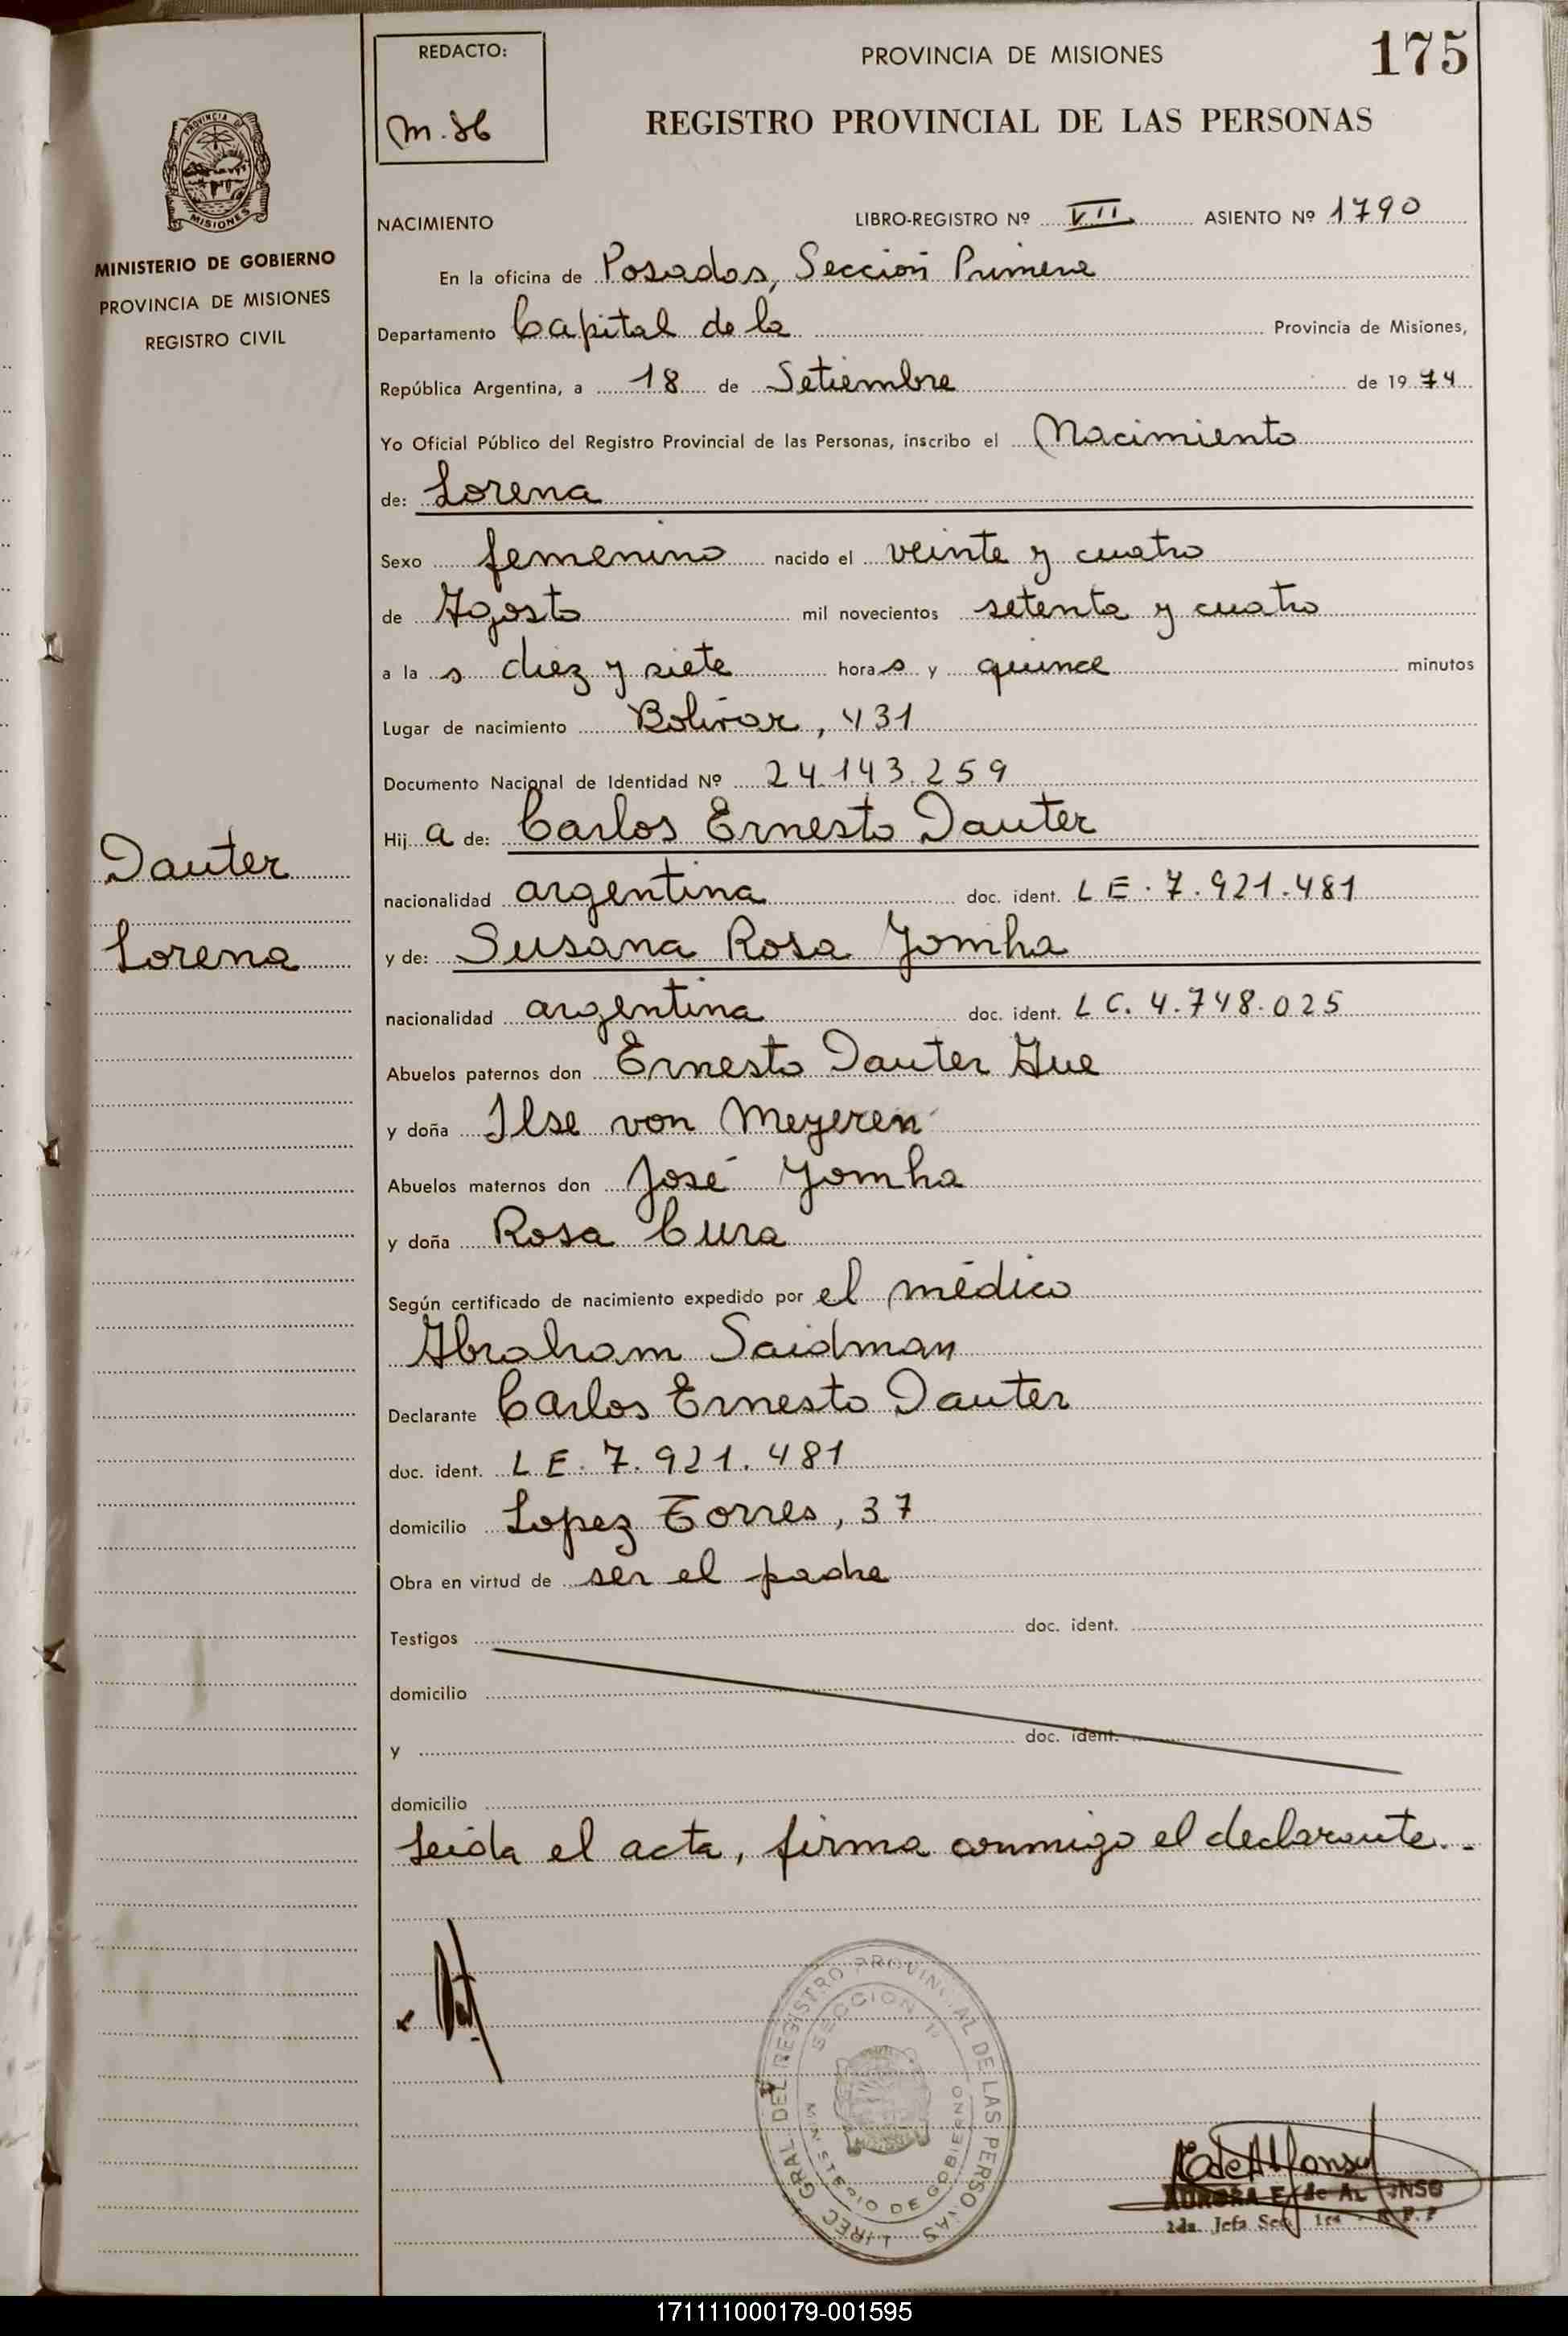 175
REDACTO:
PROVINCIA DE MISIONES
REGISTRO PROVINCIAL DE LAS PERSONAS
PROVINCIA D
MISIONES
MINISTERIO DE GOBIERNO
PROVINCIA DE MISIONES
REGISTRO CIVIL
NACIMIENTO LIBRO-REGISTRO Nº VII ASIENTO Nº 1790
En la oficina de Posadas, Sección Primera
Departamento Capital de la Provincia de Misiones,
República Argentina, a 18 de Setiembre de 1974
Yo Oficial Público del Registro Provincial de las Personas, inscribo el Nacimiento
de: Lorena
Sexo femenino nacido el veinte y cuatro
de Agosto mil novecientos setenta y cuatro
a la s diez y siete horas y quince minutos
Lugar de nacimiento Bolivar, 431
Documento Nacional de Identidad Nº 24.143.259
Hija de: Carlos Ernesto Dauter
nacionalidad argentina doc. ident. L E. 7.921.481
y de: Susana Rosa Yomha
nacionalidad argentina doc. ident. L C. 4.748.025
Abuelos paternos don Ernesto Dauter Hue
y doña Ilse von Meyeren
Abuelos maternos don José Yomha
y doña Rosa Cura
Según certificado de nacimiento expedido por el médico
Abraham Saidman
Declarante Carlos Ernesto Dauter
doc. ident. L E. 7.921.481
domicilio Lopez Torres, 37
Obra en virtud de ser el padre
Testigos doc. ident.
domicilio
y doc. ident.
domicilio
Leida el acta, firma conmigo el declarante.-
Dauter
Lorena
GRAL DEL REGISTRO PROVINCIAL DE LAS PERSONAS
SECCION 1ª
MINISTERIO DE GOBIERNO
AURORA E. de ALFONSO
2da. Jefa Sec. 1ra - R.P.P
171111000179-001595